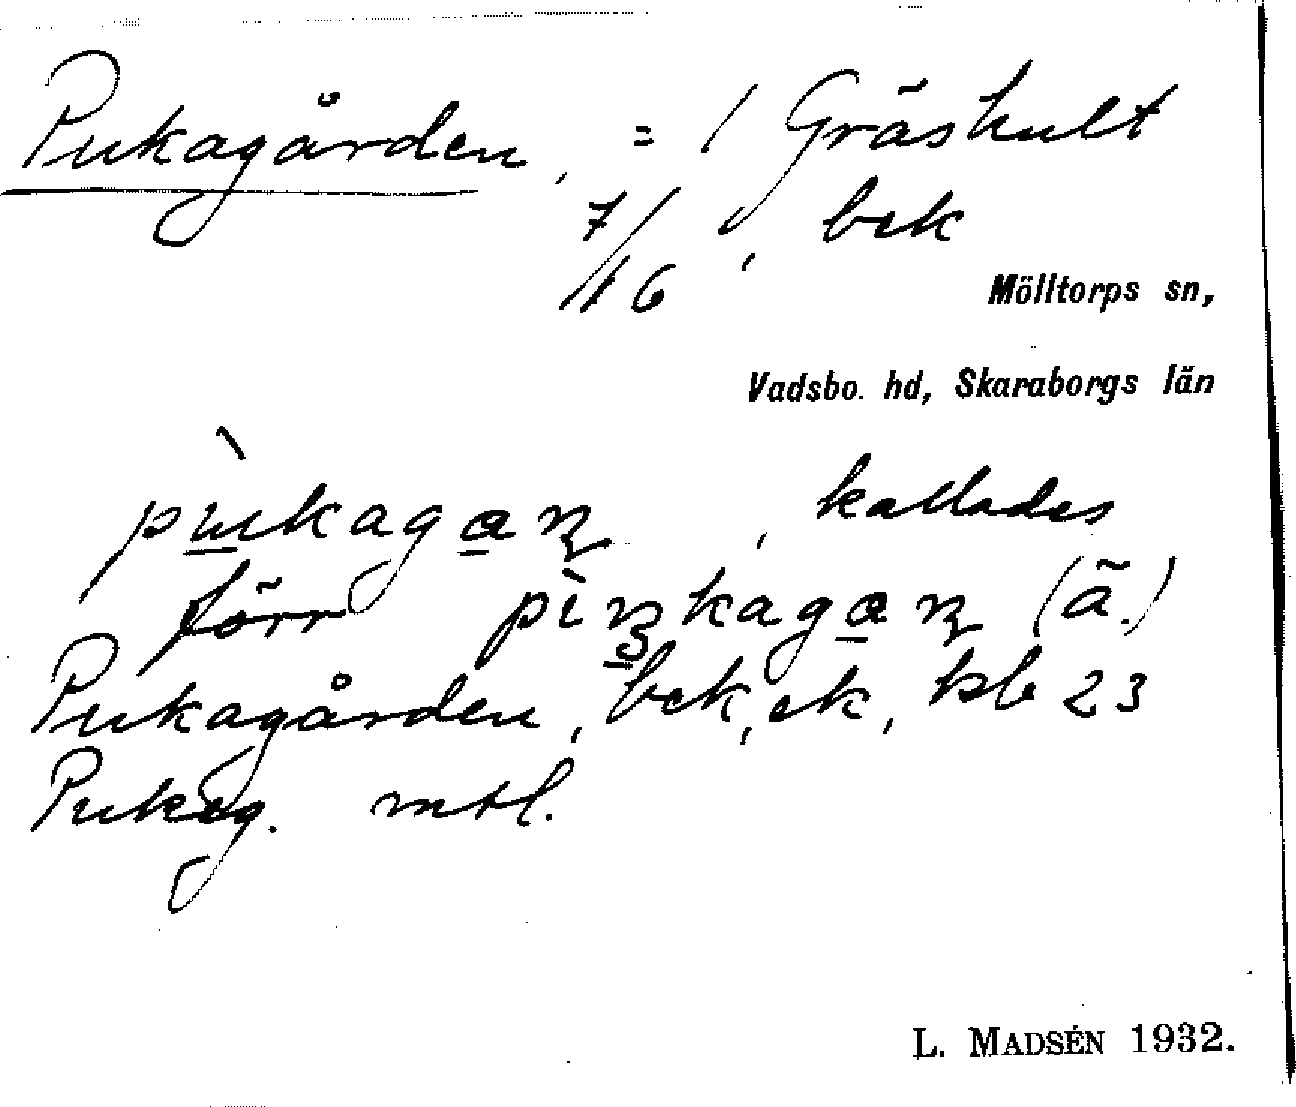 Pukagården, = / Gräshult
7/16, bek
Mölltorps sn,
Vadsbo. hd, Skaraborgs län
pùkagaɳ, kallades
förr pìŋkagaɳ (ä.)
Pukagården, bek, ek, kb 23
Pukeg. mtl.
L. MADSÉN 1932.